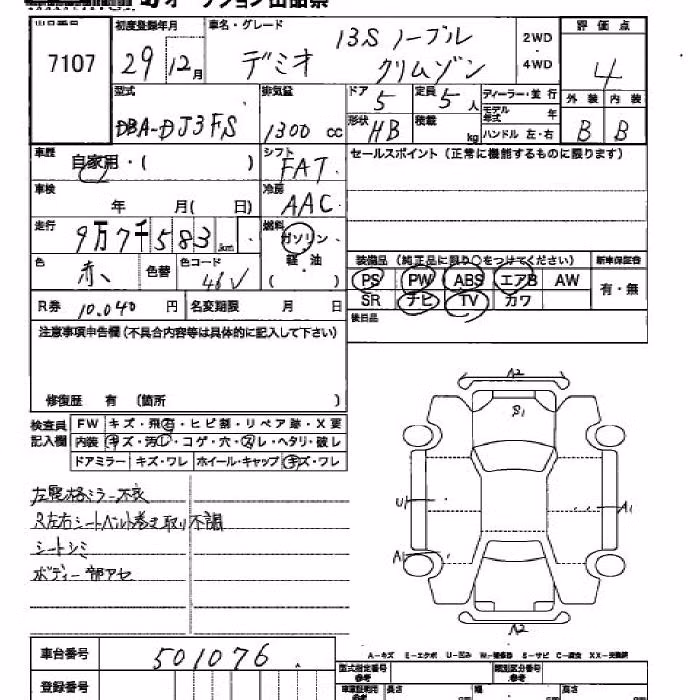 オークション出品票
7107
初度登録年月
29 12月
車名・グレード
13S ノーブル
デミオ クリムゾン
2WD
・
4WD
評価点
4
型式
DBA-DJ3FS
排気量
1300 cc
ドア 5
定員 5人
形状 HB
積載 kg
ディーラー・並行
モデル年式 年
ハンドル 左・右
外装 内装
B B
車歴
自家用・( )
シフト
FAT
セールスポイント(正常に機能するものに限ります)
車検
年 月( 日)
冷房
AAC
走行
9万7千583km
燃料
ガソリン・
軽・油
( )
色
赤
色替
色コード
46V
装備品 (純正品に限り○をつけてください)
新車保証書
PS PW ABS エアB AW
有・無
SR ナビ TV カワ
R券 10,040 円
名変期限 月 日
後日品
注意事項申告欄(不具合内容等は具体的に記入して下さい)
修復歴 有 (箇所 )
検査員
記入欄
FW キズ・飛石・ヒビ割・リペア跡・X要
内装 キズ・汚レ・コゲ・穴・スレ・ヘタリ・破レ
ドアミラー キズ・ワレ ホイール・キャップ キズ・ワレ
R左右シートベルト巻き取り不調
シートシミ
ボディ一部アセ
A2
S1
U1
A1
A1
A2
A-キズ E-エクボ U-凹み W-補修跡 S-サビ C-腐食 XX-交換済
車台番号
501076
登録番号
型式指定番号
参考
類別区分番号
参考
車庫証明用
参考
長さ
幅
高さ